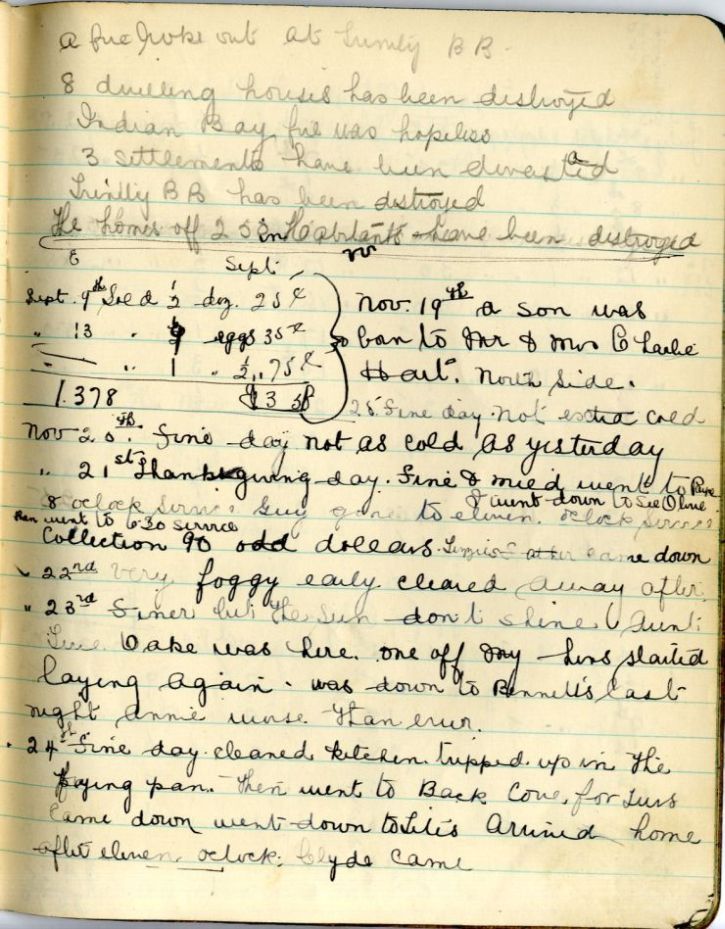 a fire broke out at Trinity B B.
8 dwelling houses has been distroyed
Indian Bay fire was hopeless
3 settlements have been devastated
Trinitly BB has been distroyed
The homes off 250 inHabitants have been distroyed
Sept
Sept. 9th Sold 1/2 doz. 25¢
" 13 " eggs 35¢
" " 1 " 1/2 " 75¢
1.378 $13 58
Nov. 19th a son was
born to Mr & Mrs Charlie
Hart. North Side.
25 Fine day. not extra cold
Nov 20th. Fine day not as cold as yesterday
" 21st Thanksgiving day. Fine & mild went to
& went down to See Olive
8 oclock Service Guy gone to eleven. oclock Service
then went to 6.30 service
Collection 90 odd dollars. came down
" 22nd very foggy early cleared away after
" 23rd Finer but the sun don't shine Aunt
Oake was here. one off my hens started
laying again. was down to Bennett's last
night Annie worse than ever.
" 24th Fine day. cleaned kitchen. tripped up in the
frying pan. Then went to Back Cove, for
came down went down to Arrived home
after eleven oclock; Clyde came